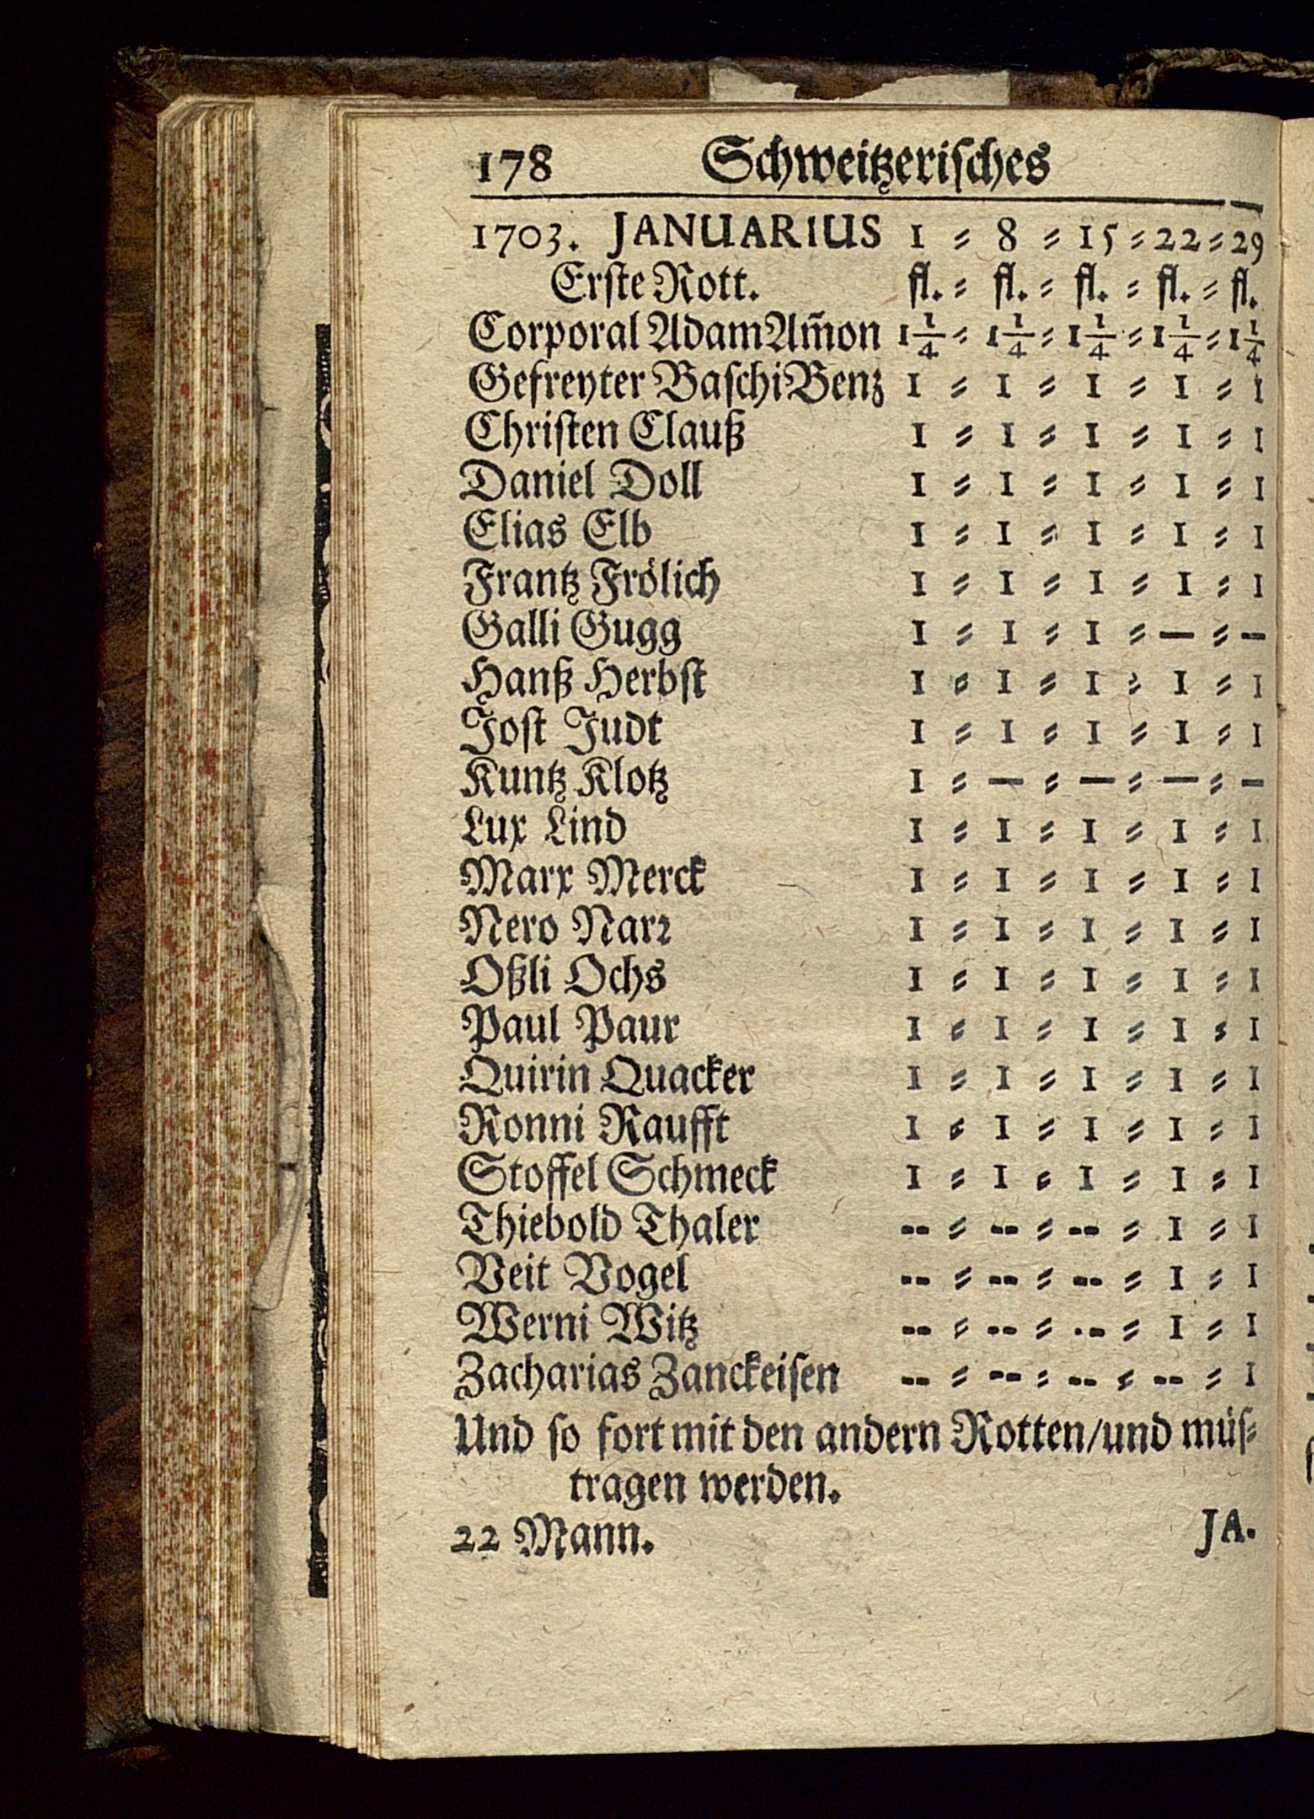 178 Schweitzerisches
1703. JANUARIUS 1 ⸗ 8 ⸗ 15 ⸗ 22 ⸗ 29
Erste Rott. fl. ⸗ fl. ⸗ fl. ⸗ fl. ⸗ fl.
Corporal Adam Am̃on 1 1/4 ⸗ 1 1/4 ⸗ 1 1/4 ⸗ 1 1/4 ⸗ 1 1/4
Gefreyter Baschi Benz 1 ⸗ 1 ⸗ 1 ⸗ 1 ⸗ 1
Christen Clauß 1 ⸗ 1 ⸗ 1 ⸗ 1 ⸗ 1
Daniel Doll 1 ⸗ 1 ⸗ 1 ⸗ 1 ⸗ 1
Elias Elb 1 ⸗ 1 ⸗ 1 ⸗ 1 ⸗ 1
Frantz Frölich 1 ⸗ 1 ⸗ 1 ⸗ 1 ⸗ 1
Galli Gugg 1 ⸗ 1 ⸗ 1 ⸗ — ⸗ —
Hanß Herbst 1 ⸗ 1 ⸗ 1 ⸗ 1 ⸗ 1
Jost Judt 1 ⸗ 1 ⸗ 1 ⸗ 1 ⸗ 1
Kuntz Klotz 1 ⸗ — ⸗ — ⸗ — ⸗ —
Lux Lind 1 ⸗ 1 ⸗ 1 ⸗ 1 ⸗ 1
Marx Merck 1 ⸗ 1 ⸗ 1 ⸗ 1 ⸗ 1
Nero Narr 1 ⸗ 1 ⸗ 1 ⸗ 1 ⸗ 1
Oßli Ochs 1 ⸗ 1 ⸗ 1 ⸗ 1 ⸗ 1
Paul Paur 1 ⸗ 1 ⸗ 1 ⸗ 1 ⸗ 1
Quirin Quacker 1 ⸗ 1 ⸗ 1 ⸗ 1 ⸗ 1
Ronni Raufft 1 ⸗ 1 ⸗ 1 ⸗ 1 ⸗ 1
Stoffel Schmeck 1 ⸗ 1 ⸗ 1 ⸗ 1 ⸗ 1
Thiebold Thaler -- ⸗ -- ⸗ -- ⸗ 1 ⸗ 1
Veit Vogel -- ⸗ -- ⸗ -- ⸗ 1 ⸗ 1
Werni Witz -- ⸗ -- ⸗ -- ⸗ 1 ⸗ 1
Zacharias Zanckeisen -- ⸗ -- ⸗ -- ⸗ -- ⸗ 1
Und so fort mit den andern Rotten/und müs⸗
tragen werden.
22 Mann. JA.